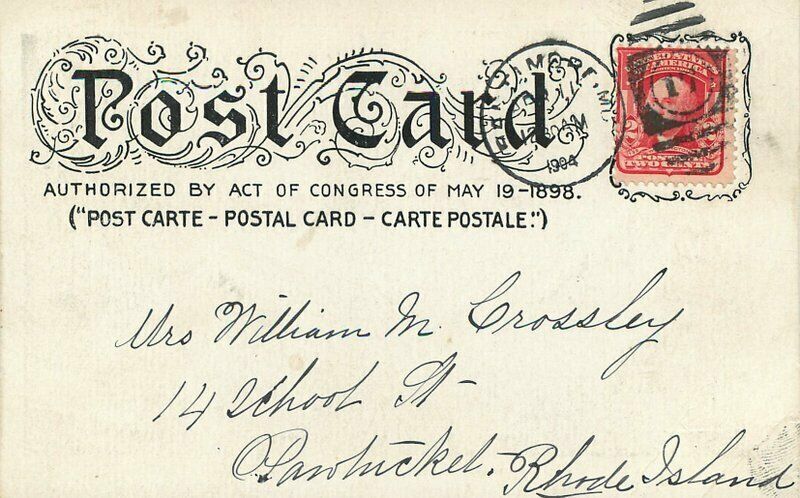 Post Card
AUTHORIZED BY ACT OF CONGRESS OF MAY 19-1898.
("POST CARTE - POSTAL CARD - CARTE POSTALE.")
BALTIMORE, MD.
1904
UNITED STATES
OF AMERICA
1
TWO CENTS
Mrs William M. Crossley
14 School St-
Pawtucket.
Rhode Island